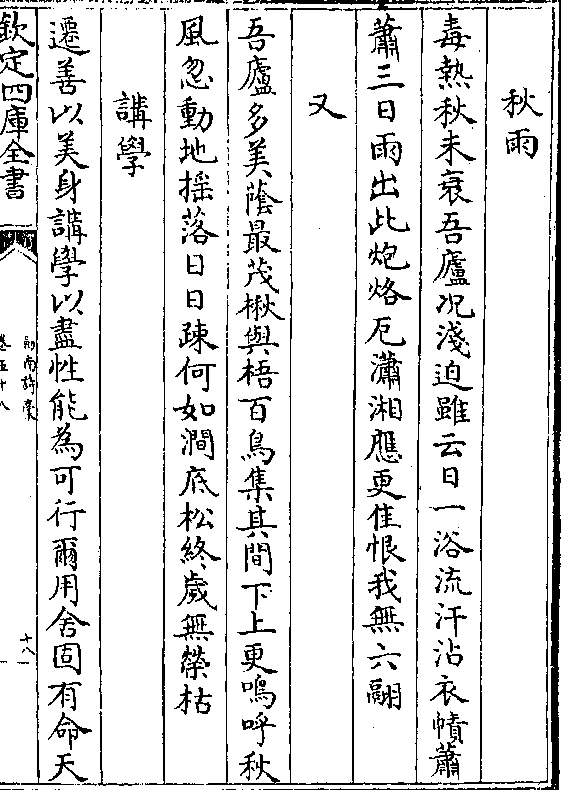 秋雨
毒熱秋未衰吾廬况淺迫雖云日一浴流汗沾衣幘蕭
蕭三日雨出此炮烙厄瀟湘應更佳恨我無六翮
又
吾廬多美蔭最茂楸與梧百鳥集其間下上更鳴呼秋
風忽動地摇落日日疎何如澗底松終歲無榮枯
講學
遷善以美身講學以盡性能為可行爾用舍固有命天
欽定四庫全書
劍南詩稾
卷五十八
十八